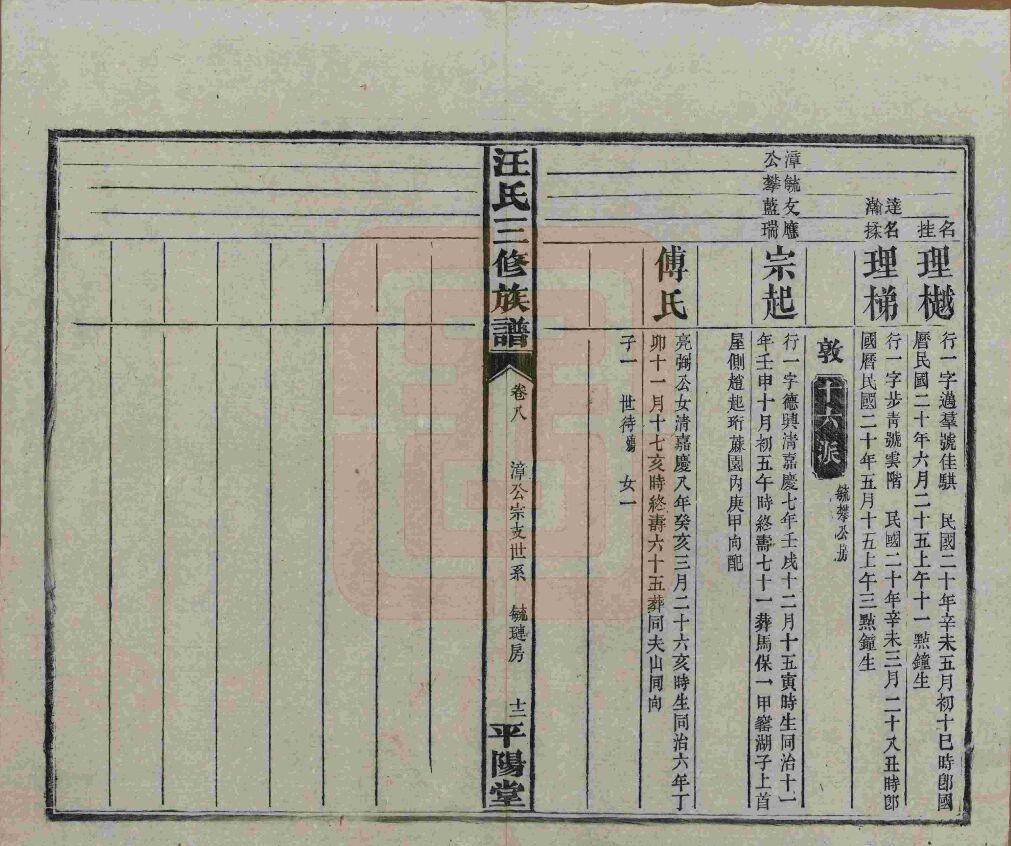 名挂
理樾
行一字過羣號佳騏 民國二十年辛未五月初十巳時郎國
曆民國二十年六月二十五上午十一點鐘生
達名
瀚揉
理梯
行一字步青號雲階 民國二十年辛未三月二十八丑時郎
國曆民國二十年五月十五上午三點鐘生
敦
十六派
毓攀公房
漳毓友應
公攀藍瑞
宗起
行一字德興清嘉慶七年壬戌十二月十五寅時生同治十一
年壬申十月初五午時終壽七十一葬馬保一甲窰湖子上首
屋側趙起珩蔴園內庚甲向配
傅氏
亮弼公女清嘉慶八年癸亥三月二十六亥時生同治六年丁
卯十一月十七亥時終壽六十五葬同夫山同向
子一 世待 女一
汪氏三修族譜
卷八
漳公宗支世系
毓璉房
十二
平陽堂